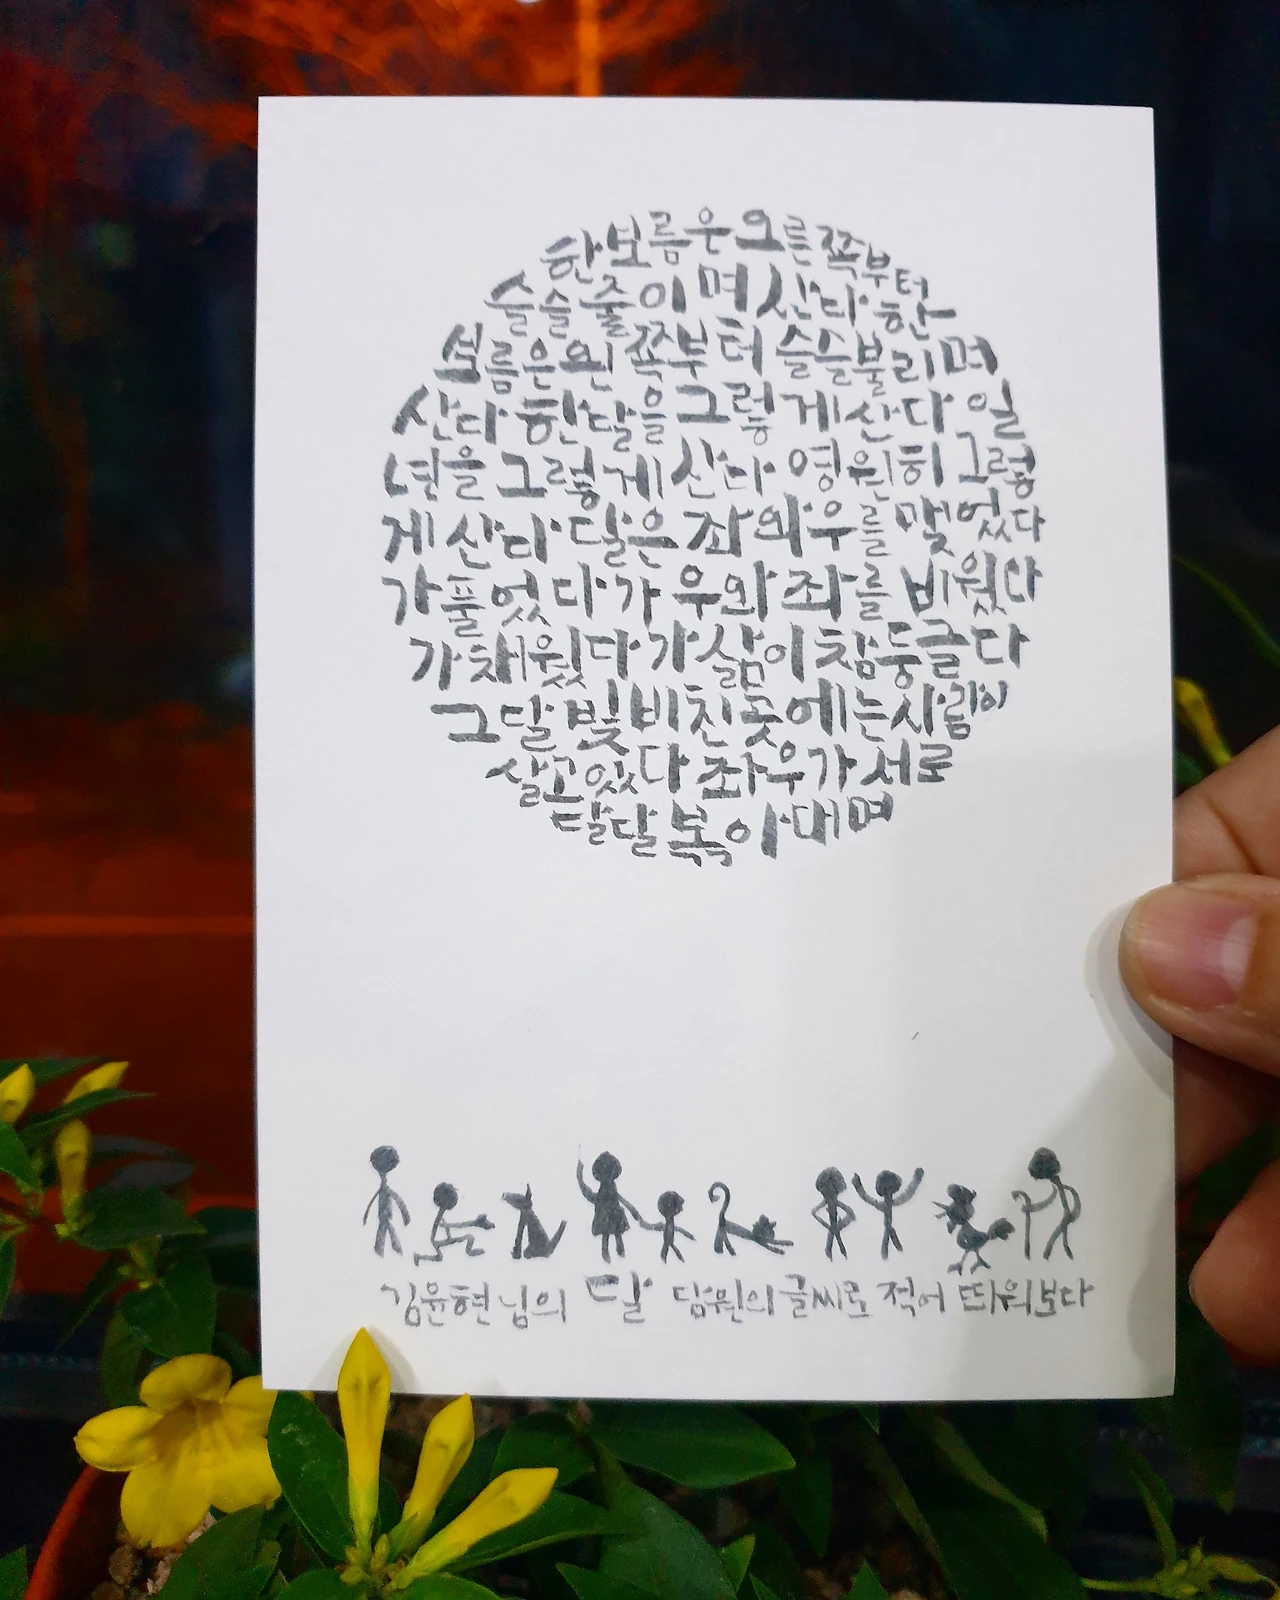 한보름은 오른쪽부터
슬슬 줄이며 산다 한
보름은 왼쪽부터 슬슬 불리며
산다 한달을 그렇게 산다 일
년을 그렇게 산다 영원히 그렇
게 산다 달은 좌와 우를 맺었다
가 풀었다가 우와 좌를 비웠다
가 채웠다가 삶이 참 둥글다
그 달빛 비친 곳에는 사람이
살고 있다 좌우가 서로
달달 볶아대며
김윤현님의 달 담원의 글씨로 적어 띄워보다